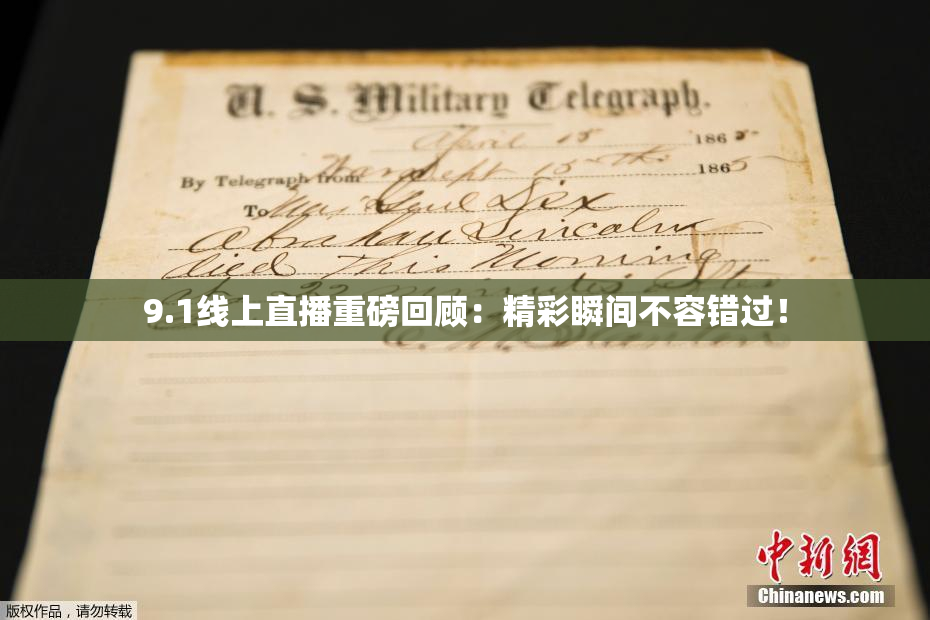 U. S. Military Telegraph.
April 15 1865
By Telegraph from War Dept 15th 1865
To Maj Genl Dix
Abraham Lincoln
died This Morning
at 22 minutes after
9.1线上直播重磅回顾：精彩瞬间不容错过！
E. M. Stanton
中新网
Chinanews.com
版权作品，请勿转载